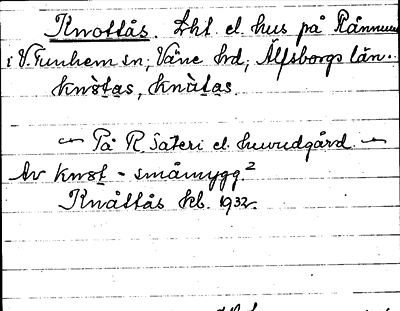 Knottås. Lht. el. hus på Rånnum
i V. Tunhem sn; Väne hd, Älfsborgs län.
knòtas, knàtas.
På R. säteri el. huvudgård.
Av knot - småmygg.²
Knåttås kb. 1932.